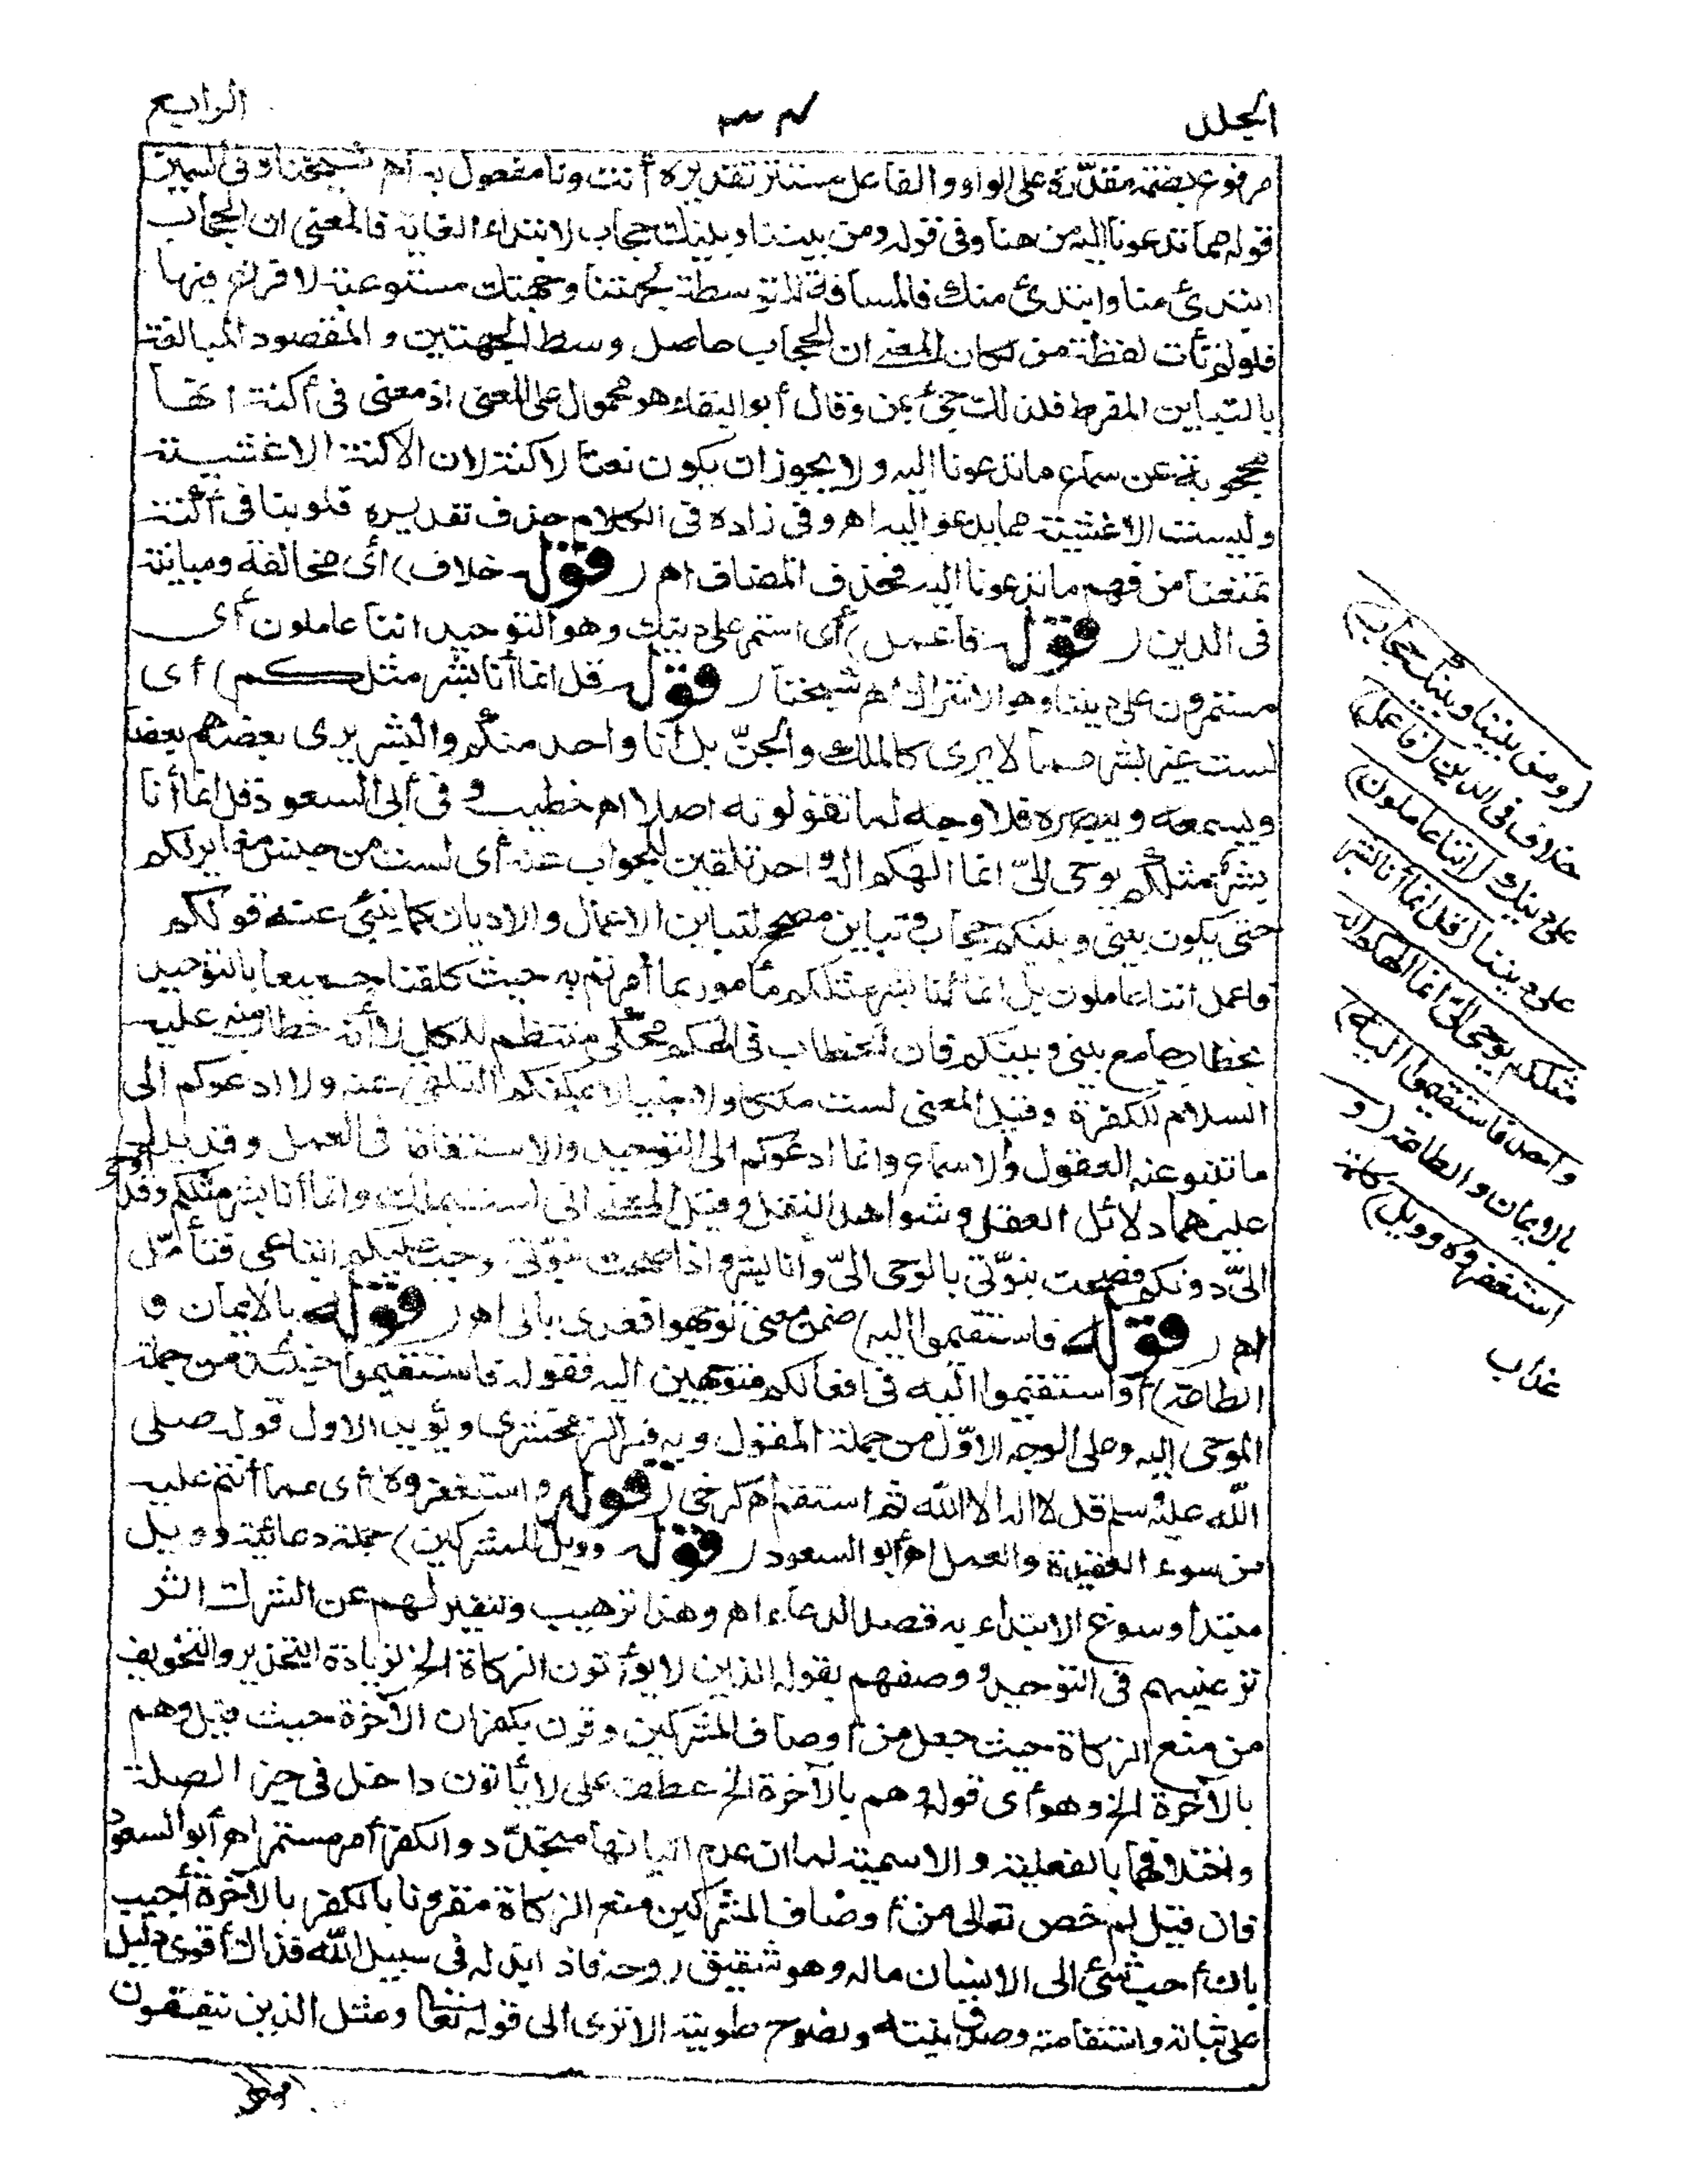 المجلد
٣٢
الرابع
مرفوع بضمة مقدّرة على الواو والفاعل مستتر تقديره أنت ونا مفعول به اهـ شيخنا وفى السمين
قوله مما تدعونا اليه من هنا وفى قوله ومن بيننا وبينك حجاب لابتداء الغاية فالمعنى ان الحجاب
ابتدئ منا وابتدئ منك فالمسافة المتوسطة لجهتنا وجهتك مستوعبة لا فراغ فيها
فلو لم تأت لفظة من لكان المعنى ان الحجاب حاصل وسط الجهتين والمقصود المبالغة
بالتباين المفرط فلذلك جئ بمن وقال أبو البقاء هو محمول على المعنى اذ معنى فى أكنة انها
محجوبة عن سماع ما تدعونا اليه ولا يجوز ان يكون نعتا لاكنة لان الاكنة الاغشية
وليست الاغشية مما يدعو اليه اهـ وفى زاده فى الكلام حذف تقديره قلوبنا فى أكنة
تمنعنا من فهم ما تدعونا اليه فحذف المضاف اهـ (قوله خلاف) أى مخالفة ومباينة
فى الدين (قوله فاعمل) أى استمر على دينك وهو التوحيد اننا عاملون أى
مستمرون على ديننا وهو الاشراك اهـ شيخنا (قوله قل انما أنا بشر مثلكم) أى
لست غير بشر مما لا يرى كالملك والجنّ بل أنا واحد منكم والبشر يرى بعضهم بعضا
ويسمعه ويبصره فلا وجه لما تقولونه اصلا اهـ خطيب وفى أبى السعود قل انما أنا
بشر مثلكم يوحى الىّ انما الهكم اله واحد تلقين للجواب عنه أى لست من جنس مغاير لكم
حتى يكون بينى وبينكم حجاب وتباين مصحح لتباين الاعمال والاديان كما ينبئ عنه قولكم
فاعمل اننا عاملون بل انما أنا بشر مثلكم مأمور بما أمرتم به حيث كلفنا جميعا بالتوحيد
بخطاب جامع بينى وبينكم فان الخطاب فى الهكم محكى منتظم للكل لا أنه خطاب منه عليه
السلام للكفرة وقيل المعنى لست ملكا ولا جنيا لا يمكنكم التلقى عنه ولا ادعوكم الى
ما تنبو عنه العقول والاسماع وانما ادعوكم الى التوحيد والاستقامة فى العمل وقد يدل
عليهما دلائل العقل وشواهد النقل وقيل المعنى انى لست بملك وانما أنا بشر مثلكم وقد أوحى
الىّ دونكم فصحت نبوّتى بالوحى الىّ وأنا بشر واذا صحت نبوّتى وجب عليكم اتباعى فتأمّل
اهـ (قوله فاستقيموا اليه) ضمن معنى توجهوا فعدى بالى اهـ (قوله بالايمان و
الطاعة) أو استقيموا اليه فى افعالكم متوجهين اليه فقوله فاستقيموا حينئذ من جملة
الموحى اليه وعلى الوجه الاوّل من جملة المقول وبه فسر الزمخشرى ويؤيد الاول قوله صلى
الله عليه وسلم قل لا اله الا الله ثم استقم اهـ كرخى (قوله واستغفروه) أى مما أنتم عليه
من سوء العقيدة والعمل اهـ أبو السعود (قوله وويل للمشركين) جملة دعائية وويل
مبتدأ وسوغ الابتداء به قصد الدعاء اهـ وهذا ترهيب وتنفير لهم عن الشرك اثر
ترغيبهم فى التوحيد ووصفهم بقوله الذين لا يؤتون الزكاة الخ لزيادة التحذير والتخويف
من منع الزكاة حيث جعل من أوصاف المشركين وقرن بكفران الآخرة حيث قيل وهم
بالآخرة الخ وهو أى قوله وهم بالآخرة الخ عطف على لا يأتون داخل فى حيز الصلة
واختلافهما بالفعلية والاسمية لما ان عدم اتيانها متجدّد والكفر أمر مستمر اهـ أبو السعود
فان قيل لم خص تعالى من أوصاف المشركين منع الزكاة مقرونا بالكفر بالآخرة أجيب
بان أحب شئ الى الانسان ماله وهو شقيق روحه فاذا بذله فى سبيل الله فذاك أقوى دليل
على ثباته واستقامته وصدق نيته ونصوح طويته الا ترى الى قوله تعالى ومثل الذين ينفقون
(ومن بيننا وبينك حجاب)
خلاف فى الدين (فاعمل)
على دينك (اننا عاملون)
على ديننا (قل انما أنا بشر
مثلكم يوحى الىّ انما الهكم اله
واحد فاستقيموا اليه)
بالايمان والطاعة (و
استغفروه وويل) كلمة
عذاب